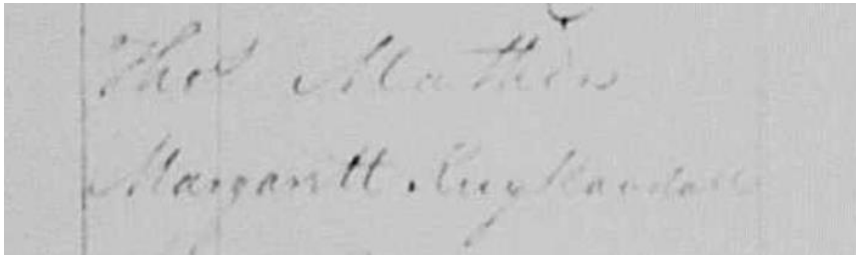 Thos Mathews
Margaritt Kuykandall